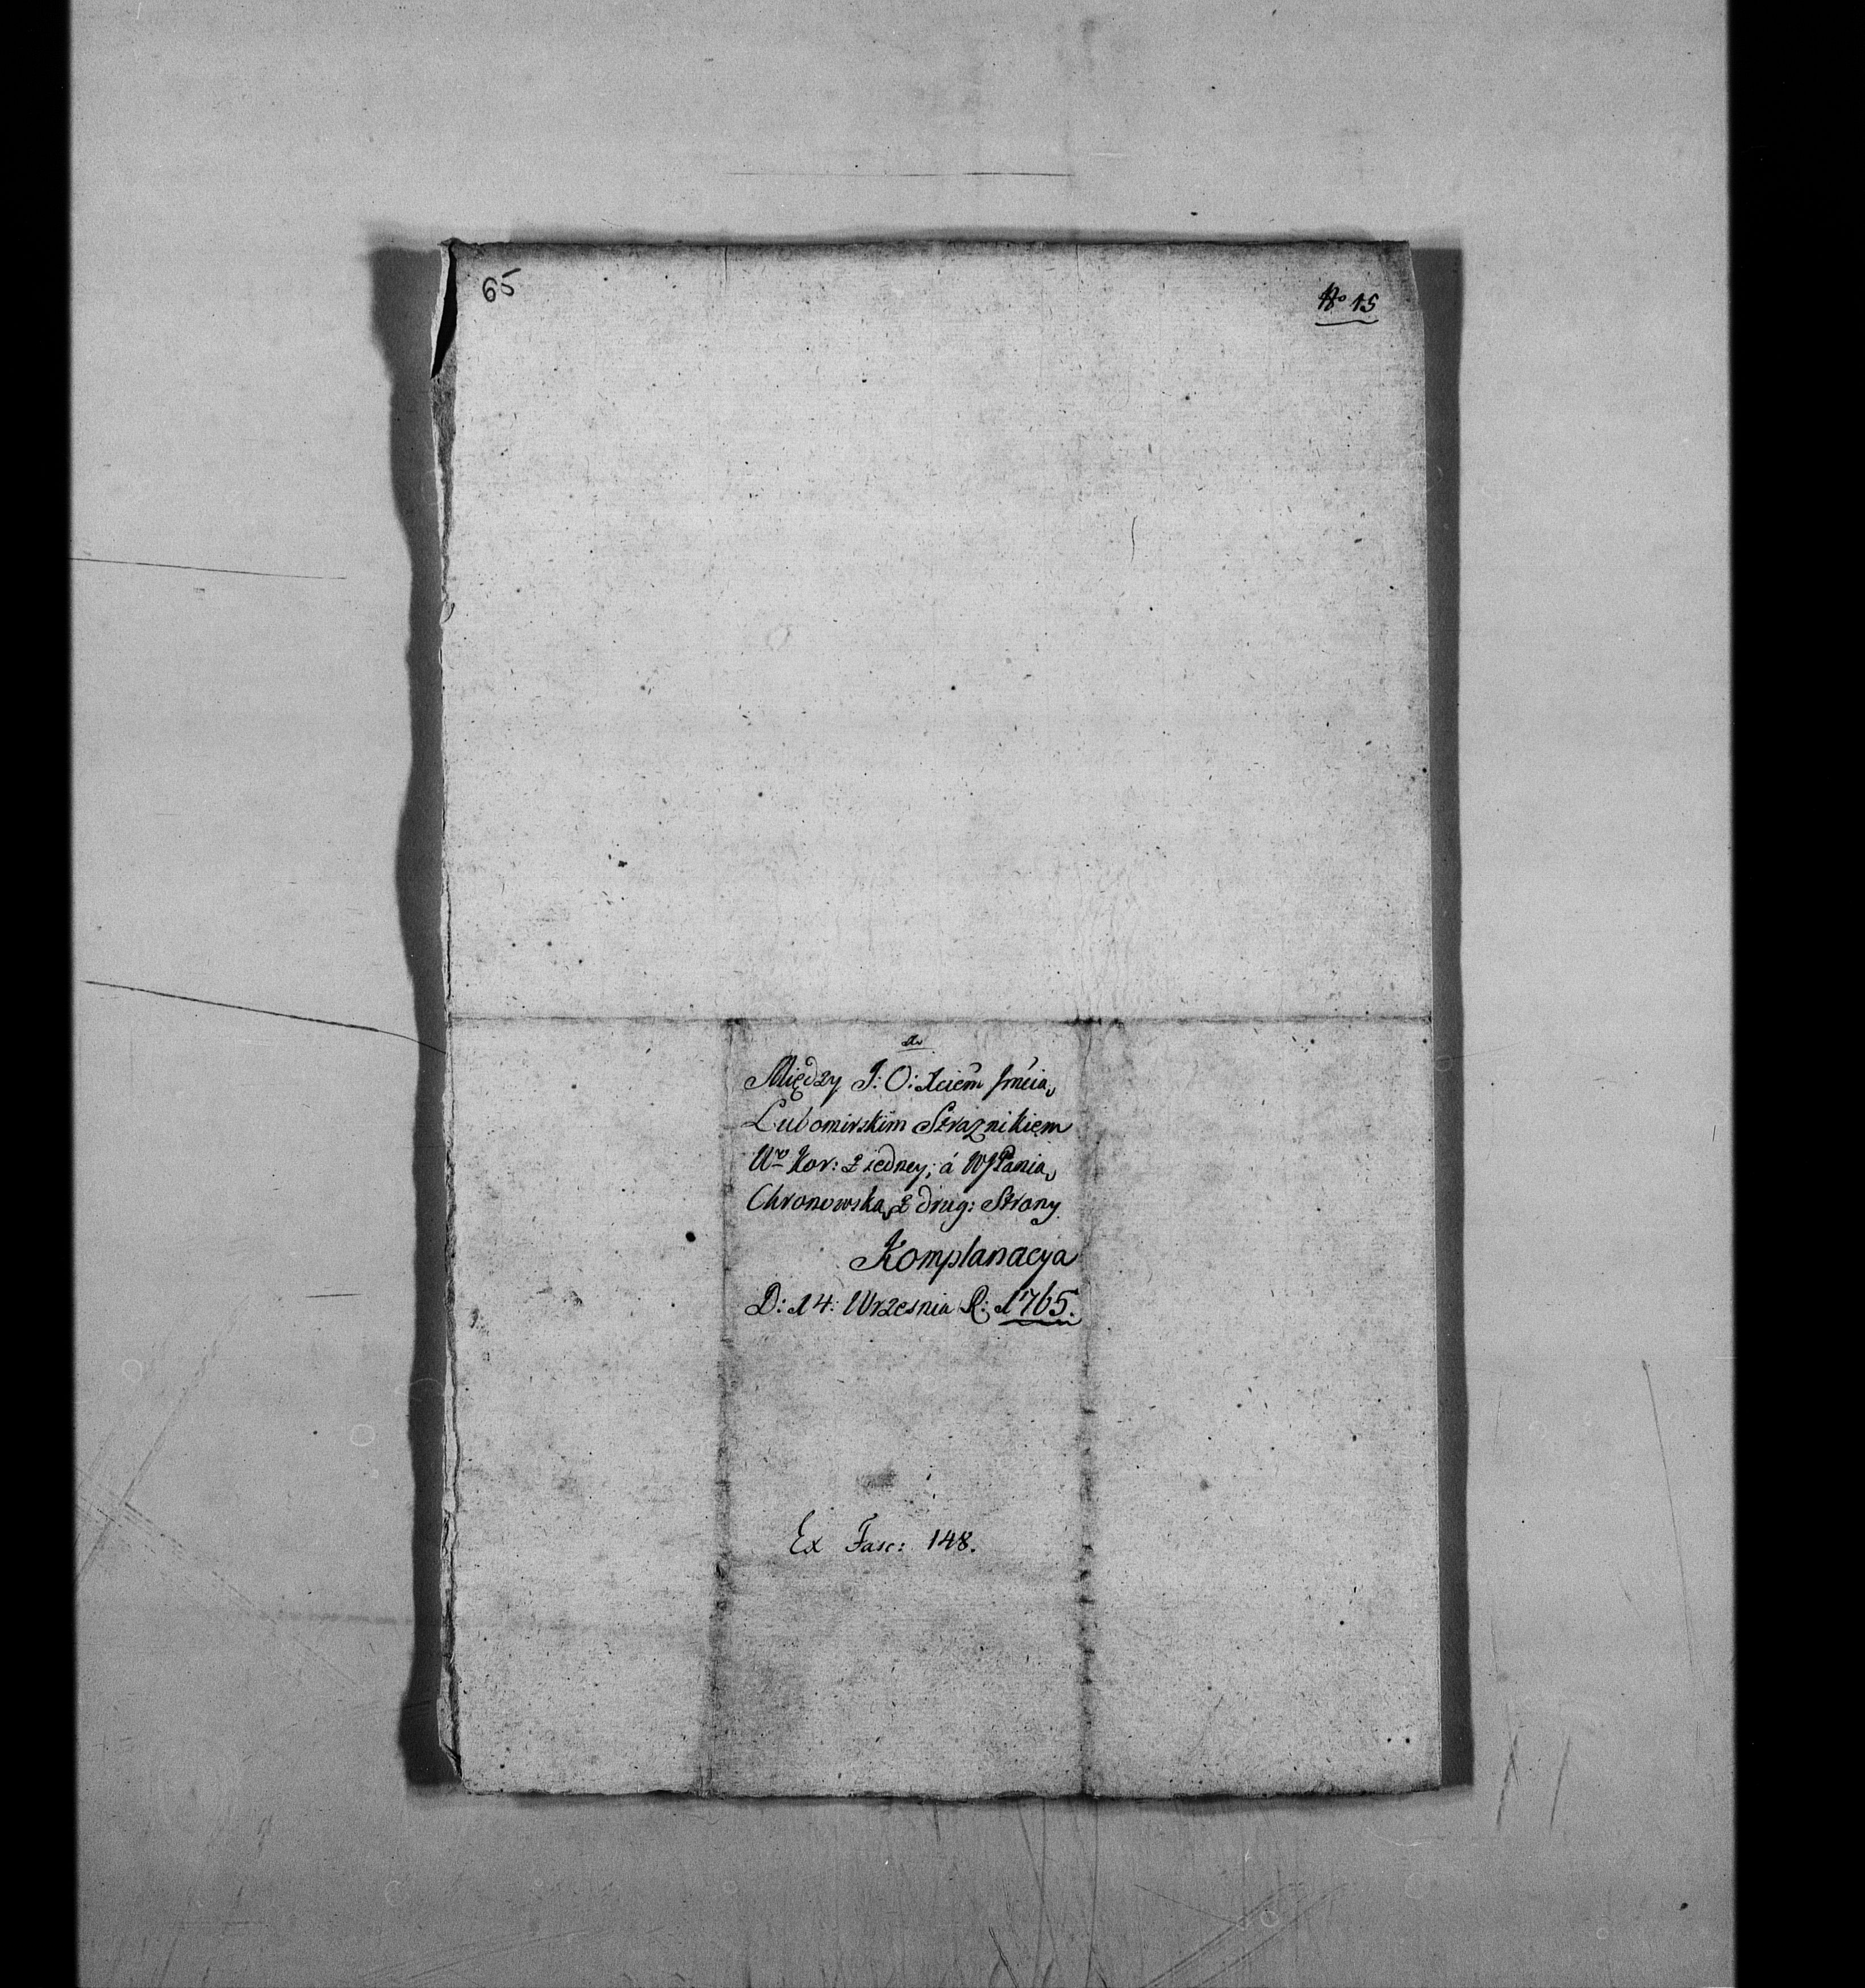 65
No 15
Między J: O: Xciem Jmcią
Lubomirskim Straznikiem
Wo Kor: z iedney; á WJPanią
Chronowską z drug: Strony
Komplanacya
D: 14: Wrzesnia R: 1765.
Ex Fasc: 148.